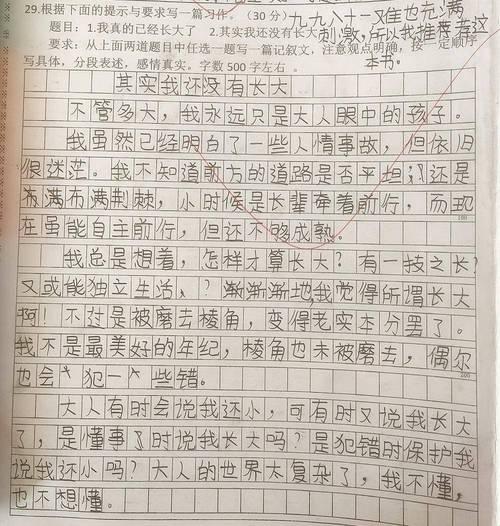 29.根据下面的提示与要求写一篇习作。（30分）九九八十一难也充满
题目：1.我真的已经长大了　2.其实我还没有长大 刺激，所以我推荐荐这
要求：从上面两道题目中任选一题写一篇记叙文，注意观点明确，按一定顺序 本书。
写具体，分段表述，感情真实。字数500字左右。
其实我还没有长大
不管多大，我永远只是大人眼中的孩子。
我虽然已经明白了一些人情事故，但依旧
很迷茫。我不知道前方的道路是否平坦；还是
布满布满荆棘，小时候是长辈牵着前行，而现
100
在虽能自主前行，但还不够成熟。
我总是想着，怎样才算长大？有一技之长？
又或能独立生活、？渐渐渐地，我觉得所谓长大
啊！不过是被磨去棱角，变得老实本分罢了。
我不是最美好的年纪，棱角也未被磨去，偶尔
200
也会犯一些错。
大人有时会说我还小，可有时又说我长大
了，是懂事了时说我长大吗？是犯错时保护我
说我还小吗？大人的世界太复杂了，我不懂，
也不想懂。